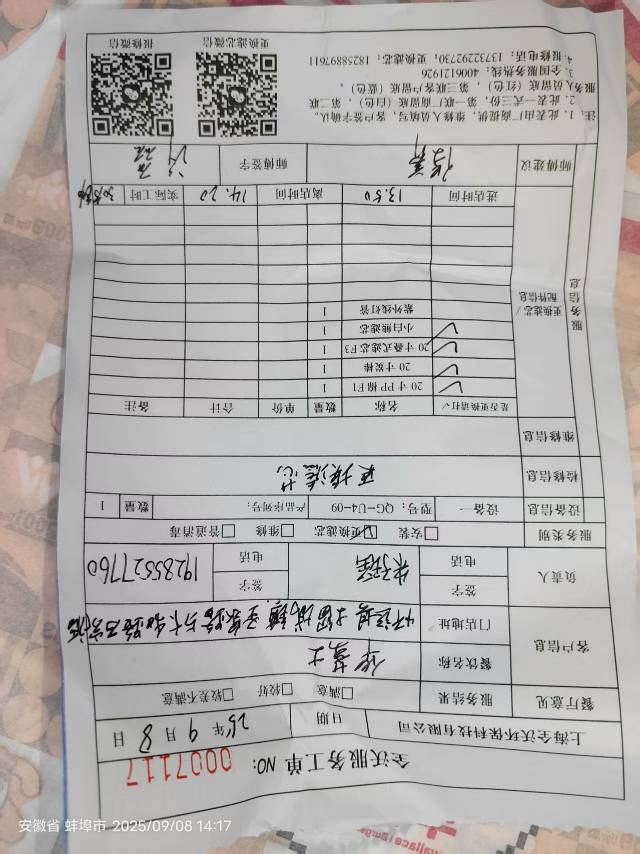 全沃服务工单 NO: 0007117
上海全沃环保科技有限公司 日期 25年9月8日
餐厅意见 服务结果 □满意 □较好 □较差不满意
客户信息 餐饮名称 华莱士
门店地址
负责人 签字 签字
电话 电话 19285527760
服务类别 □安装 ☑更换滤芯 □维修 □管道消毒
设备信息 设备一 型号: QG-U4-09 产品序列号: 数量 1
检修信息 更换滤芯
维修信息
服务信息 更换滤芯/配件信息
是否更换请打√ 名称 数量 单价 合计 备注
✓ 20寸PP棉F1 1
✓ 20寸炭棒 1
✓ 20寸叠式滤芯F3 1
✓ 小白熊滤芯 1
紫外线灯管 1
进店时间 13.50 离店时间 14.20 实际工时 30分钟
师傅建议 师傅签字
注: 1. 此表由厂商提供，维修人员填写，客户签字确认。
2. 此表一式三份，第一联厂商留底（白色），第二联
服务人员留底（红色），第三联客户留底（蓝色）。
3. 全国服务热线: 4006121926
4. 报修电话: 13732292730; 更换滤芯: 18258897611
更换滤芯微信 报修微信
安徽省 蚌埠市 2025/09/08 14:17